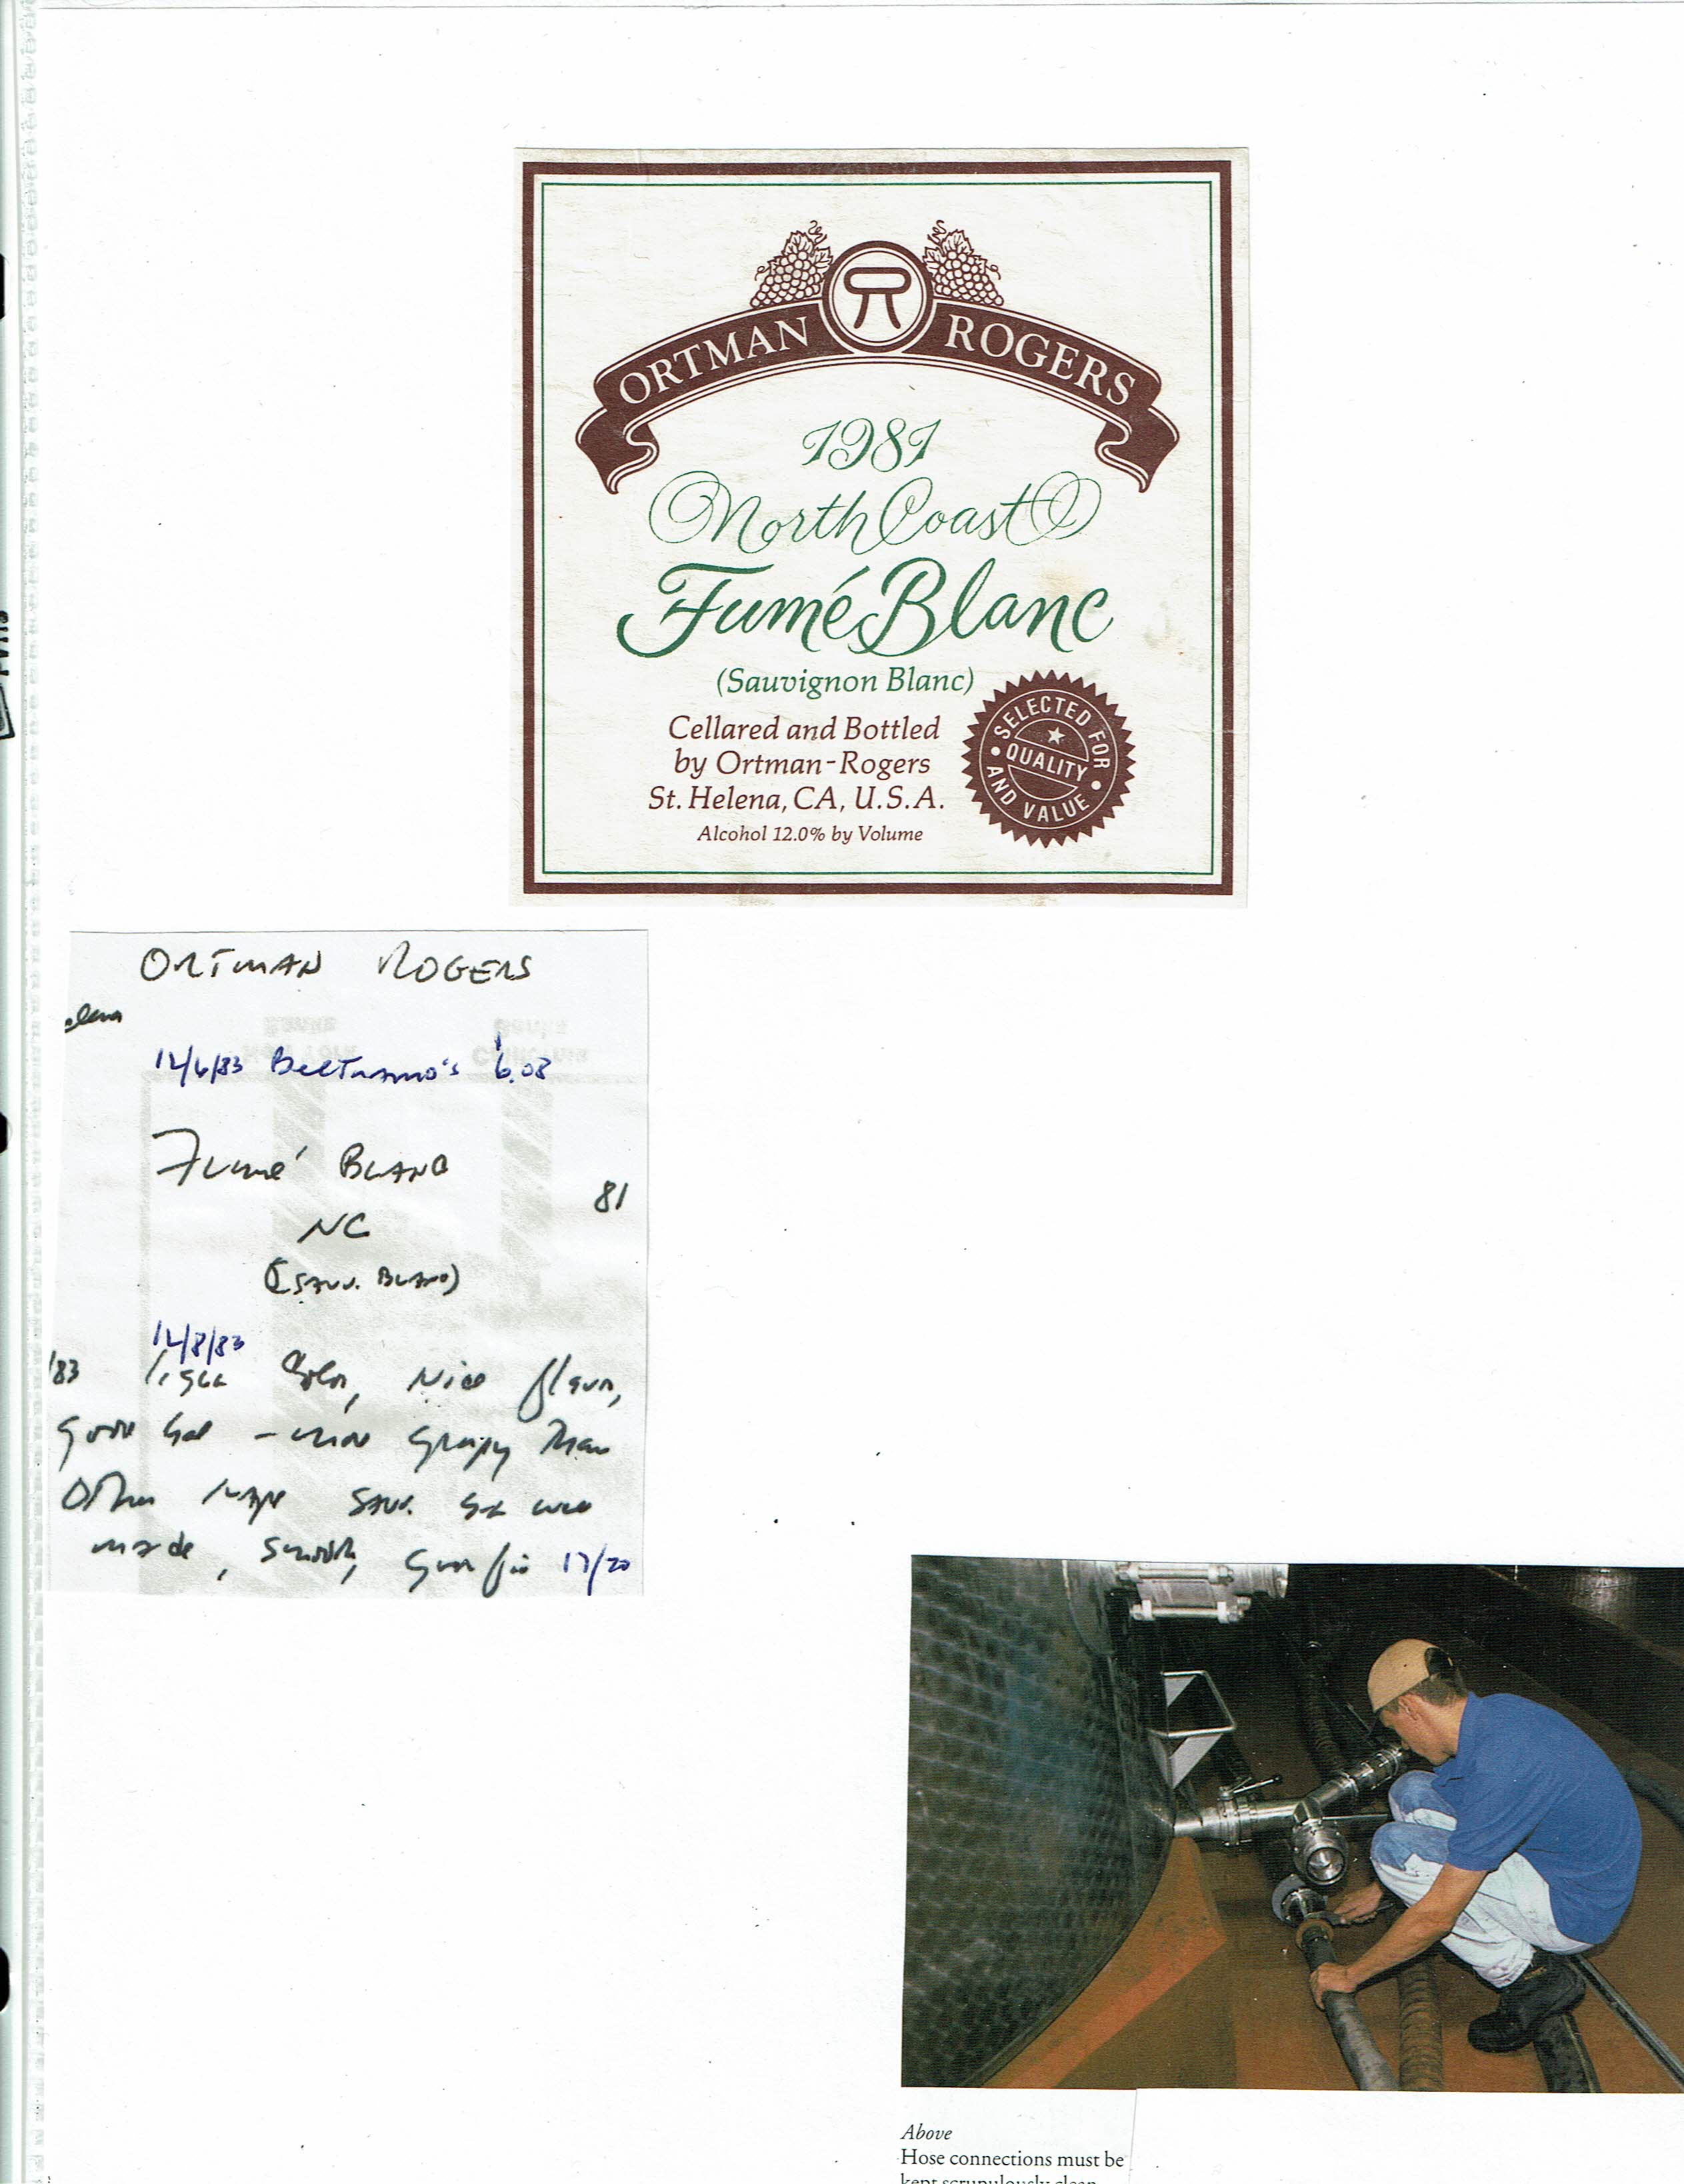 ORTMAN ROGERS
1981
North Coast
Fumé Blanc
(Sauvignon Blanc)
Cellared and Bottled
by Ortman-Rogers
St. Helena, CA, U.S.A.
Alcohol 12.0% by Volume
SELECTED FOR
QUALITY
AND VALUE
ORTMAN ROGERS
12/6/83 Beltramo's $6.08
Fumé BLANC
81
NC
(SAUV. BLANC)
12/8/83
/83 light Color, Nice flavor,
good - more grapy than
Other Napa SAUV. well
made, smooth, 17/20
Above
Hose connections must be
kept scrupulously clean